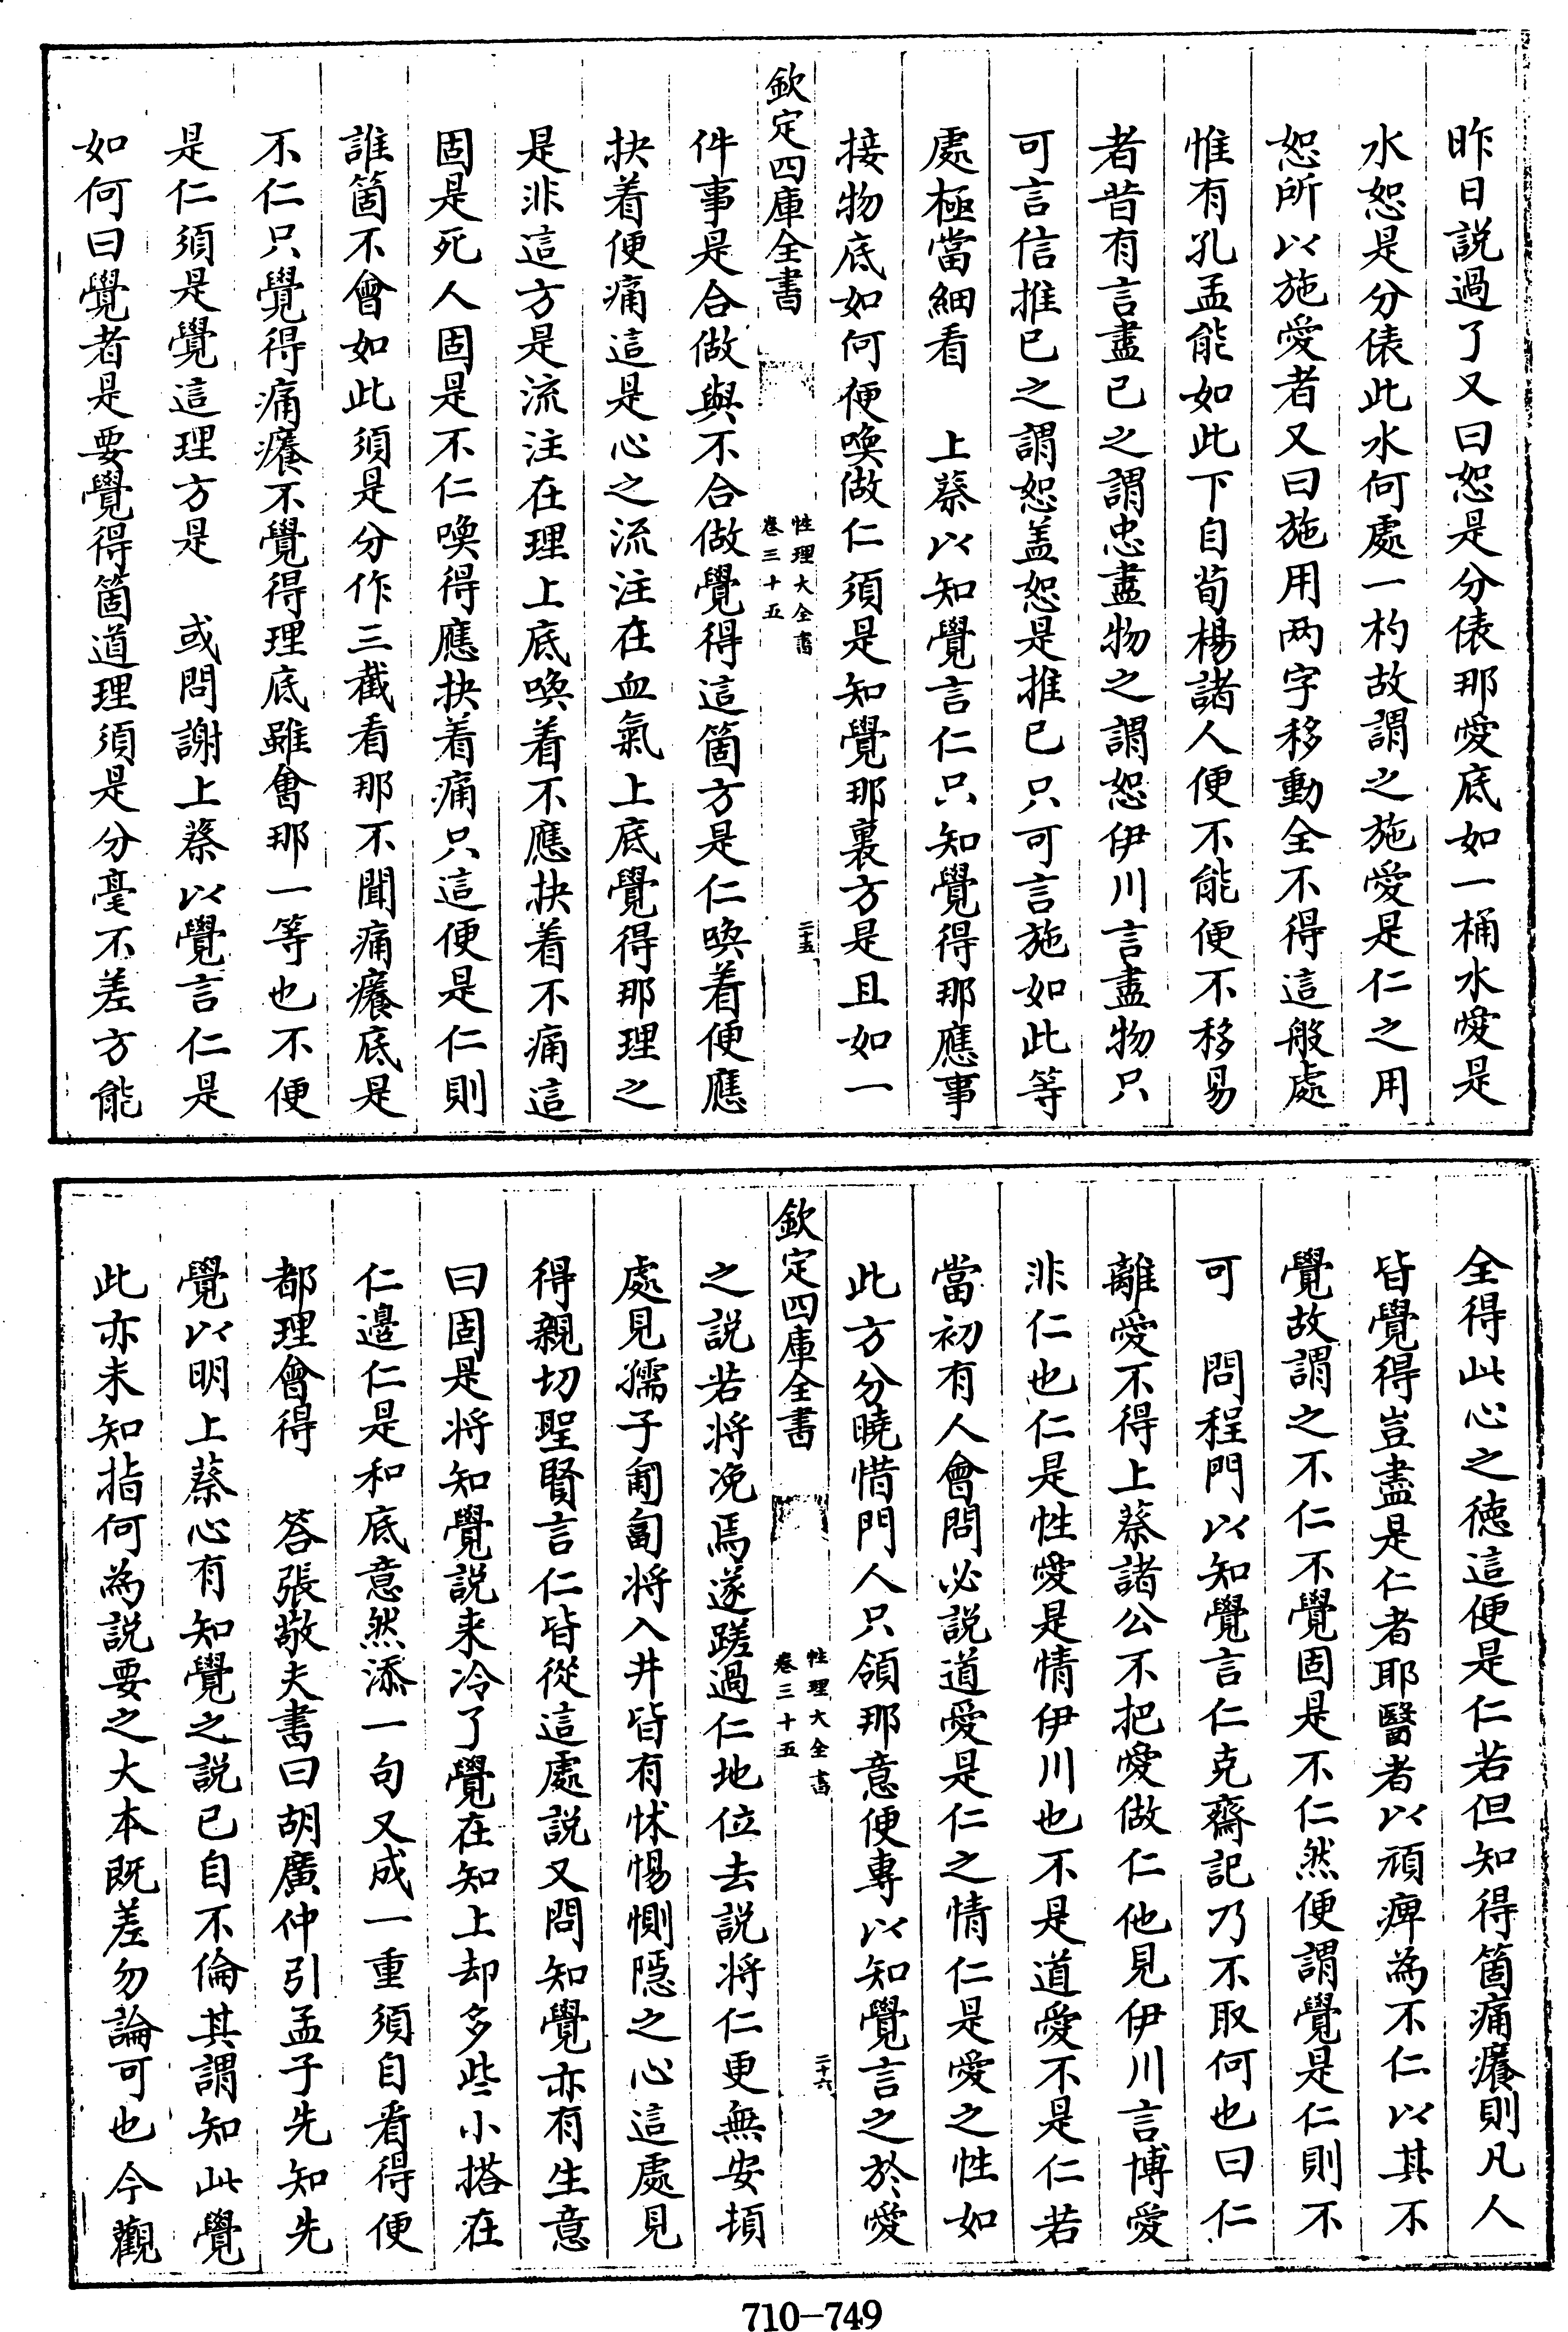 昨日説過了又曰恕是分俵那愛底如一桶水愛是
水恕是分俵此水何處一杓故謂之施愛是仁之用
恕所以施愛者又曰施用两字移動全不得這般處
惟有孔孟能如此下自荀楊諸人便不能便不移易
者昔有言盡已之謂忠盡物之謂恕伊川言盡物只
可言信推已之謂恕盖恕是推已只可言施如此等
處極當細看　上蔡以知覺言仁只知覺得那應事
接物底如何便喚做仁須是知覺那裏方是且如一
欽定四庫全書
性理大全書
卷三十五
二十五
件事是合做與不合做覺得這箇方是仁喚着便應
抉着便痛這是心之流注在血氣上底覺得那理之
是非這方是流注在理上底喚着不應抉着不痛這
固是死人固是不仁喚得應抉着痛只這便是仁則
誰箇不會如此須是分作三截看那不聞痛癢底是
不仁只覺得痛癢不覺得理底雖會那一等也不便
是仁須是覺這理方是　或問謝上蔡以覺言仁是
如何曰覺者是要覺得箇道理須是分毫不差方能
全得此心之德這便是仁若但知得箇痛癢則凡人
皆覺得豈盡是仁者耶醫者以頑痺為不仁以其不
覺故謂之不仁不覺固是不仁然便謂覺是仁則不
可　問程門以知覺言仁克齋記乃不取何也曰仁
離愛不得上蔡諸公不把愛做仁他見伊川言博愛
非仁也仁是性愛是情伊川也不是道愛不是仁若
當初有人會問必說道愛是仁之情仁是愛之性如
此方分曉惜門人只領那意便專以知覺言之於愛
欽定四庫全書
性理大全書
卷三十五
二十六
之說若將浼焉遂蹉過仁地位去説將仁更無安頓
處見孺子匍匐將入井皆有怵惕惻隱之心這處見
得親切聖賢言仁皆從這處説又問知覺亦有生意
曰固是将知覺説来冷了覺在知上却多些小搭在
仁邉仁是和底意然添一句又成一重須自看得便
都理會得　答張敬夫書曰胡廣仲引孟子先知先
覺以明上蔡心有知覺之説已自不倫其謂知此覺
此亦未知指何為説要之大本既差勿論可也今觀
710-749